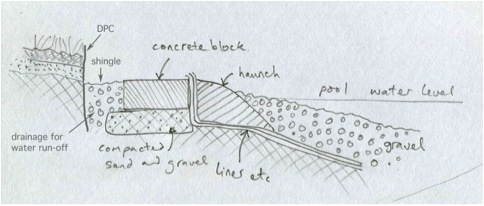 DPC
concrete block.
shingle
haunch
pool water level
drainage for
water run-off
compacted
sand and gravel
liner etc
gravel